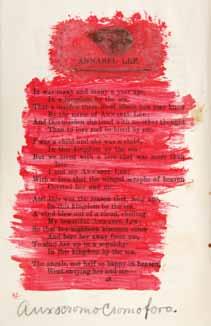 ANNABEL LEE.
It was many and many a year ago,
In a kingdom by the sea,
That a maiden there lived whom you may know
By the name of ANNABEL LEE;
And this maiden she lived with no other thought
Than to love and be loved by me.
I was a child and she was a child,
In this kingdom by the sea:
But we loved with a love that was more than
I and my ANNABEL LEE;
With a love that the winged seraphs of heaven
Coveted her and me.
And this was the reason that, long ago,
In this kingdom by the sea,
A wind blew out of a cloud, chilling
My beautiful ANNABEL LEE;
So that her highborn kinsmen came
And bore her away from me,
To shut her up in a sepulchre
In this kingdom by the sea.
The angels, not half so happy in heaven,
Went envying her and me—